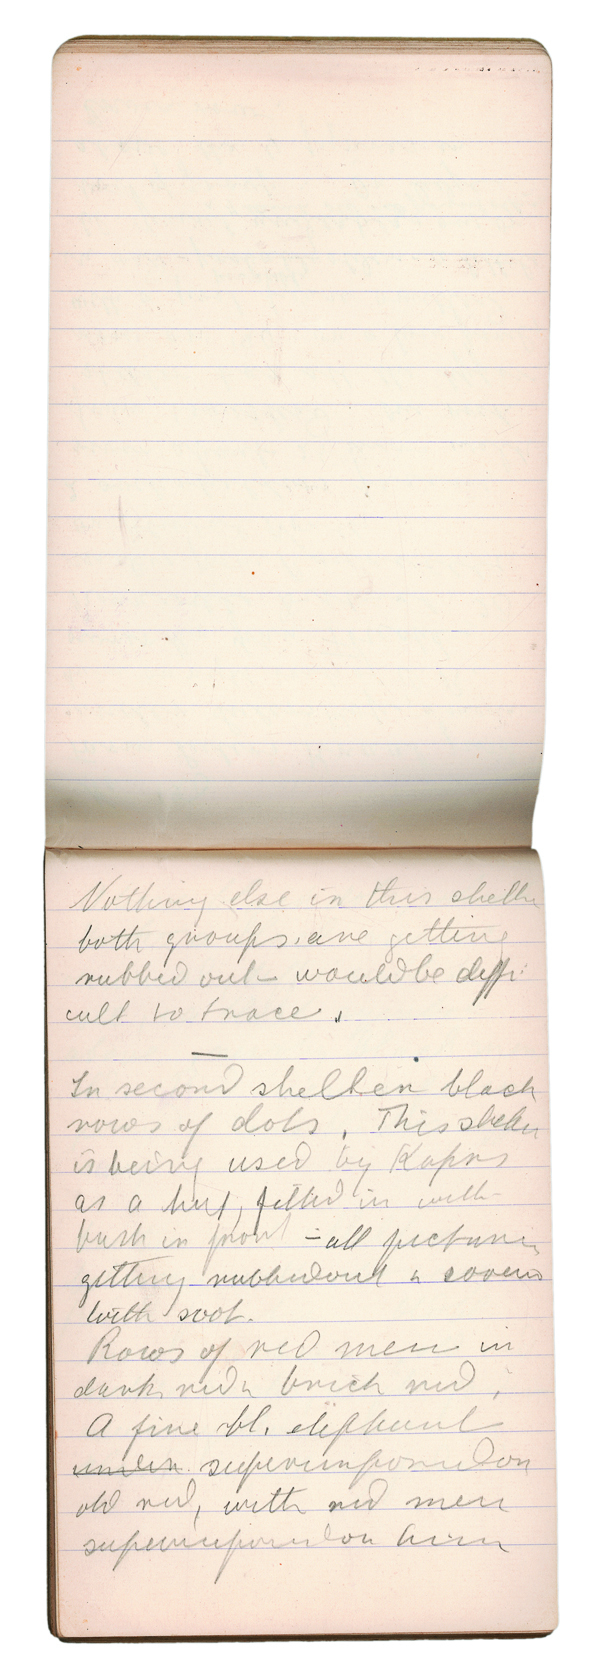 Nothing else in this shelter
both groups are getting
rubbed out would be diffi-
cult to trace.
In second shelter black
rows of dots. This shelter
is being used by Kafirs
as a hut, fitted in with
bush in front – all pictures
getting rubbed out & covered
with soot.
Rows of red men in
dark red & brick red.
A fine bl. elephant
under superimposed on
old red, with red men
superimposed on him